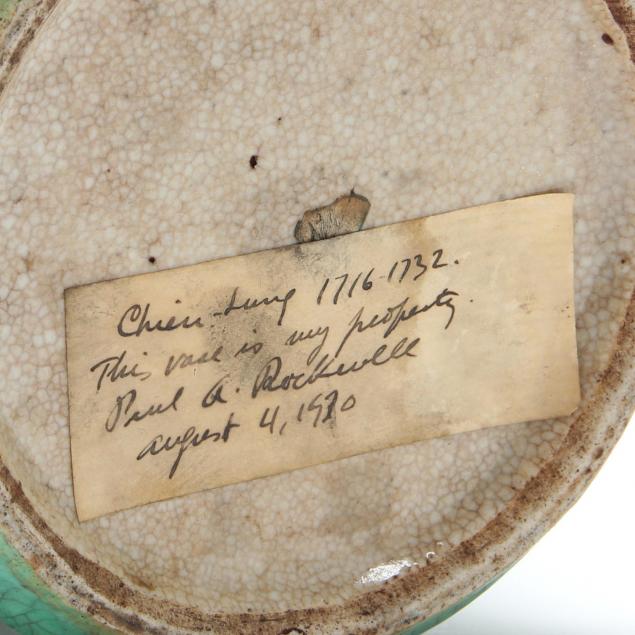 Chien-Lung 1716-1732.
This vase is my property.
Paul A. Rockwell
august 4, 1970